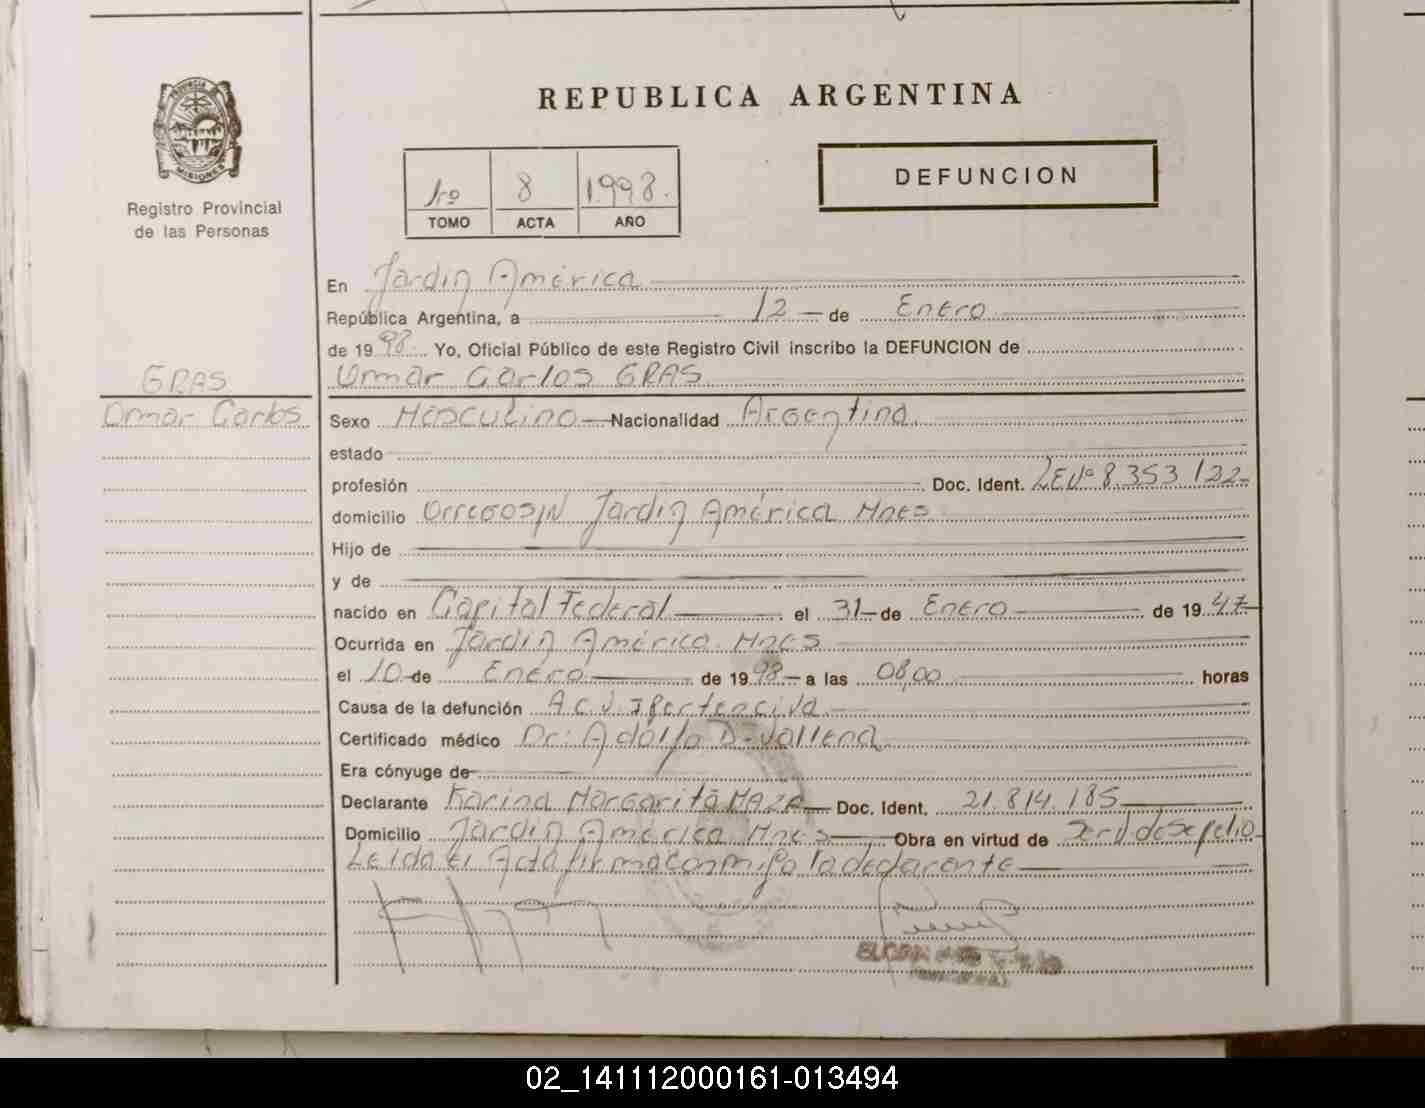 REPUBLICA ARGENTINA
PROVINCIA DE
MISIONES
Registro Provincial
de las Personas
1ro 8 1998.
TOMO ACTA AÑO
DEFUNCION
En Jardin América
República Argentina, a 12 de Enero
de 1998. Yo, Oficial Público de este Registro Civil inscribo la DEFUNCION de
Omar Carlos GRAS
GRAS
Omar Carlos
Sexo Masculino Nacionalidad Argentina.
estado
profesión Doc. Ident. LENº 8.353.122
domicilio Jardin América Mnes
Hijo de
y de
nacido en Capital Federal el 31 de Enero de 1947
Ocurrida en Jardin América. Mnes
el 10 de Enero de 1998 a las 08,00 horas
Causa de la defunción A.C.V.
Certificado médico Dr: Adolfo D.
Era cónyuge de
Declarante Karina Margarita MAZA Doc. Ident. 21.814.185
Domicilio Jardin América Mnes Obra en virtud de Serv de Sepelio
Leida el Acta firma conmigo la declarante
02_141112000161-013494